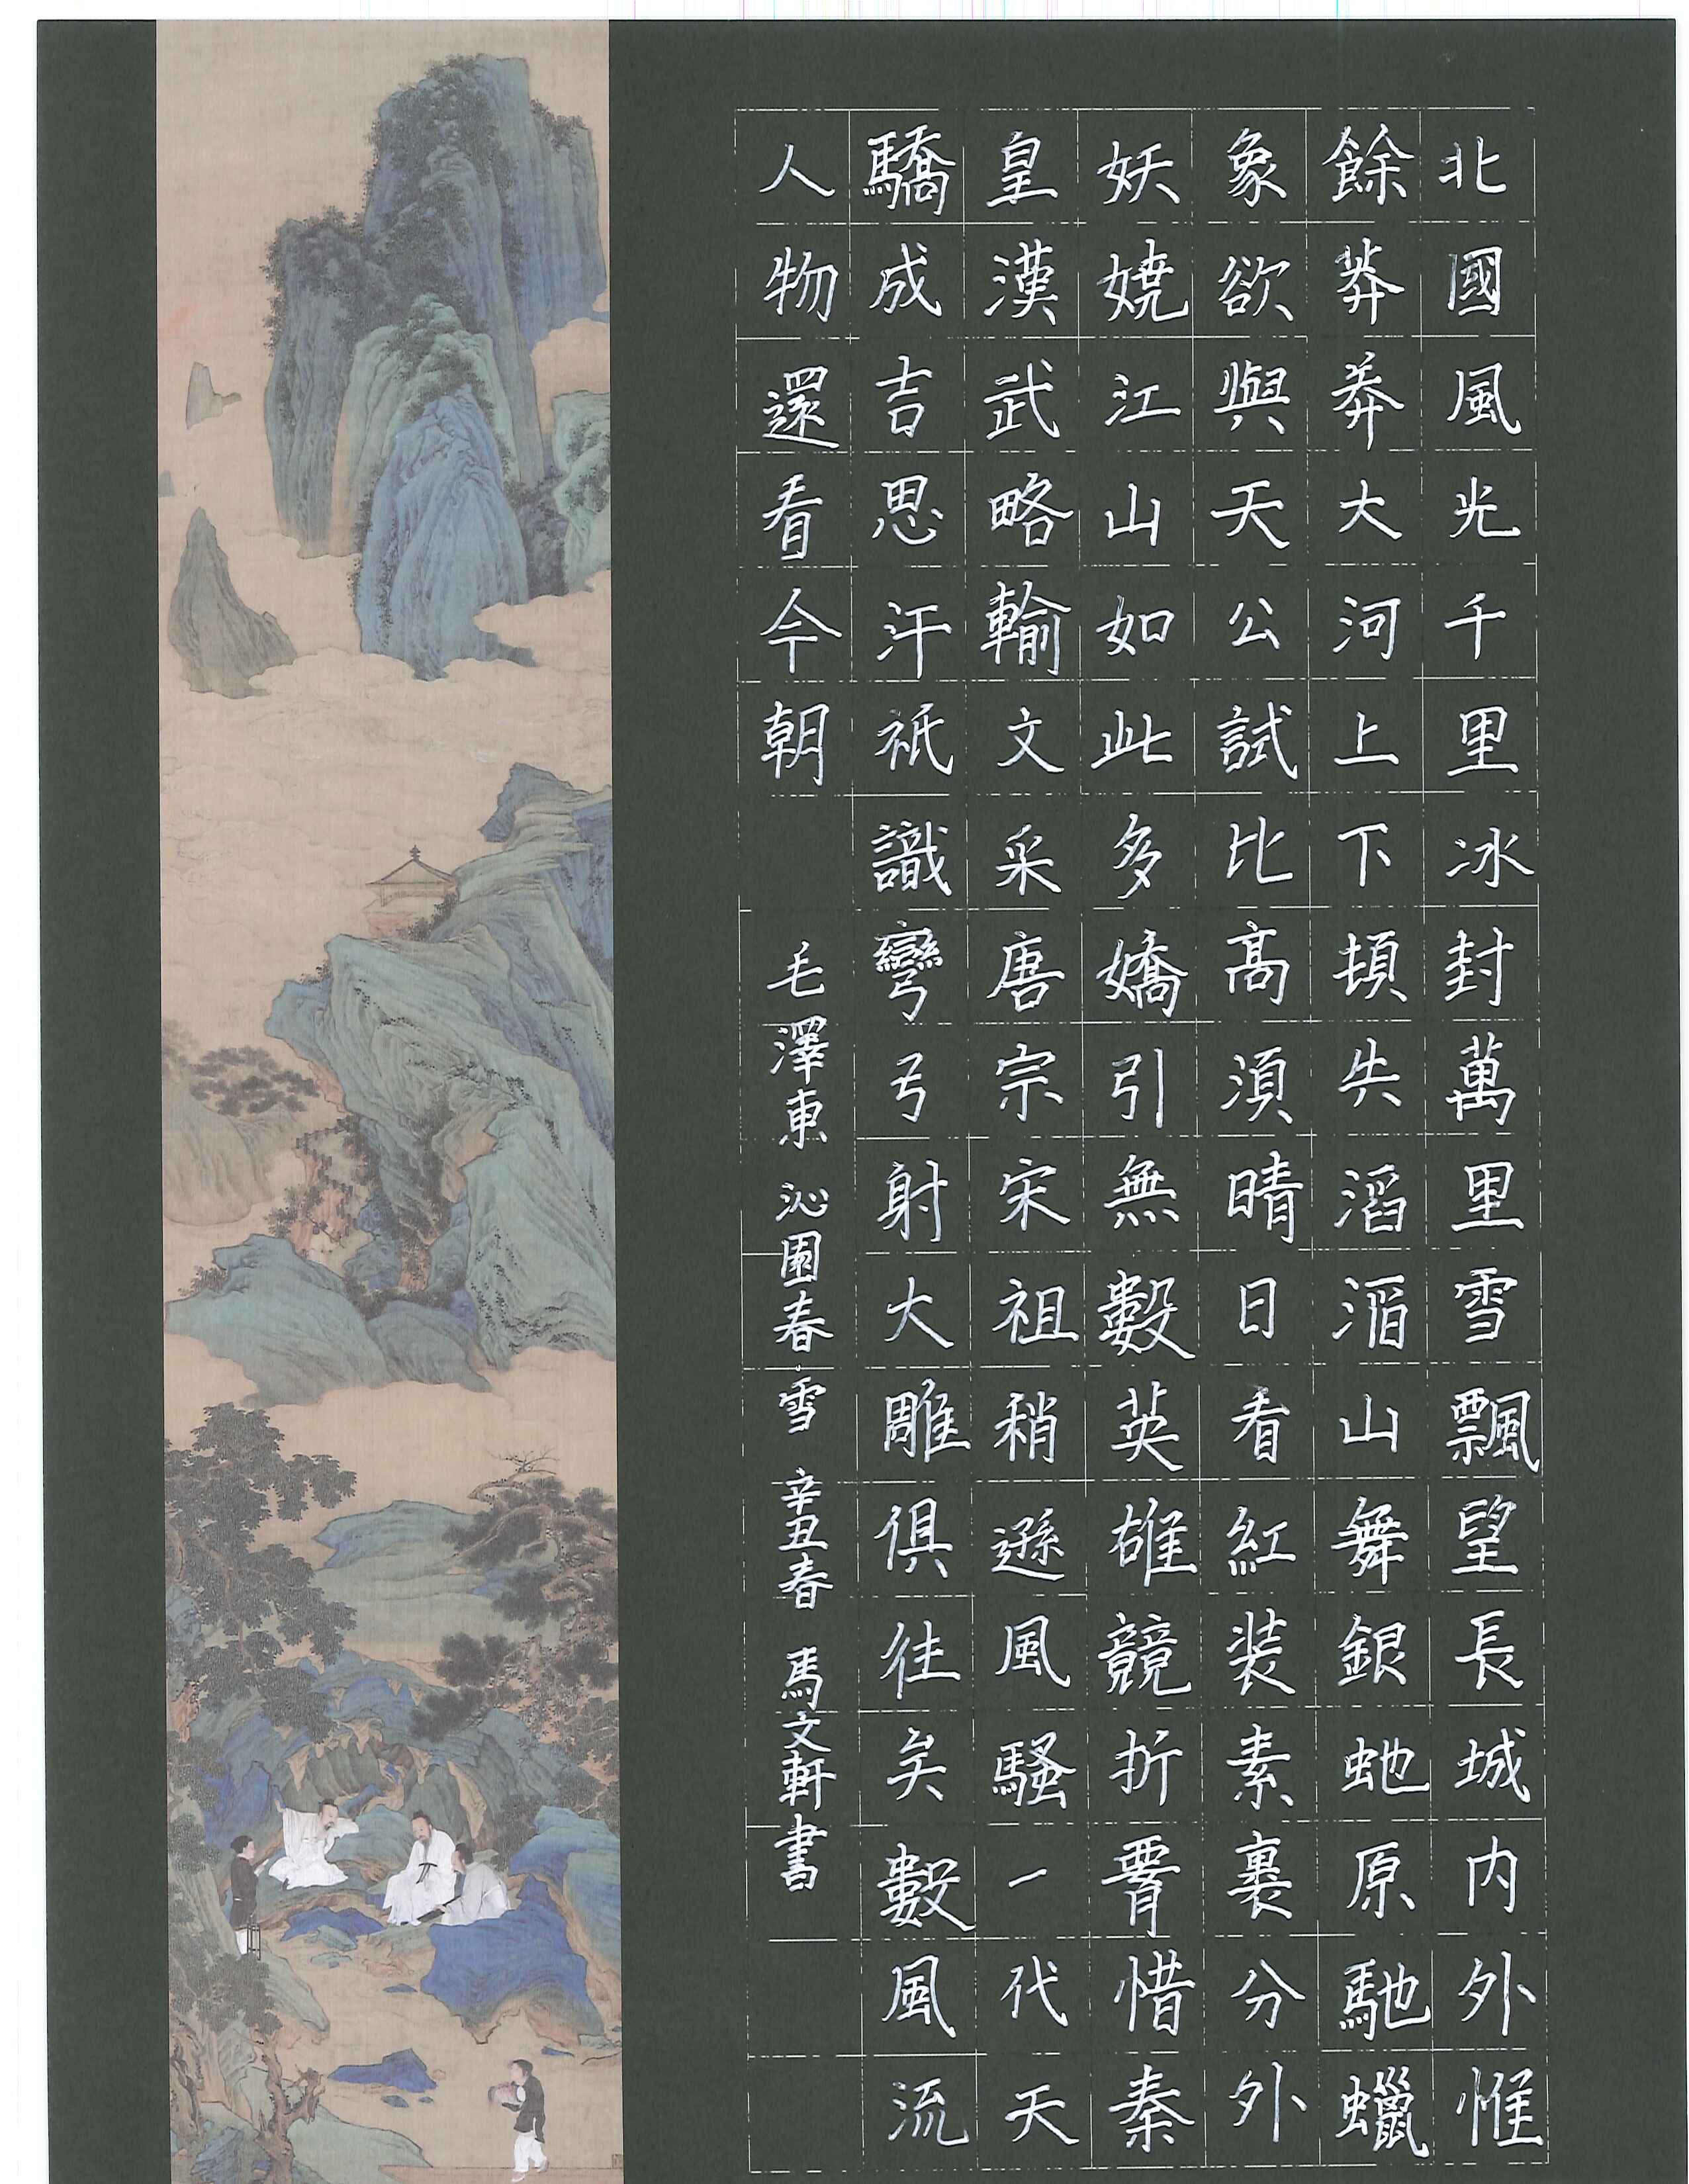 北國風光千里冰封萬里雪飄望長城内外惟
餘莽莽大河上下頓失滔滔山舞銀虵原馳蠟
象欲與天公試比髙須晴日看紅装素裹分外
妖嬈江山如此多嬌引無數英雄競折腰惜秦
皇漢武略輸文采唐宗宋祖稍遜風騷一代天
驕成吉思汗祇識彎弓射大雕俱往矣數風流
人物還看今朝 毛澤東 沁園春·雪 辛丑春 馬文軒書